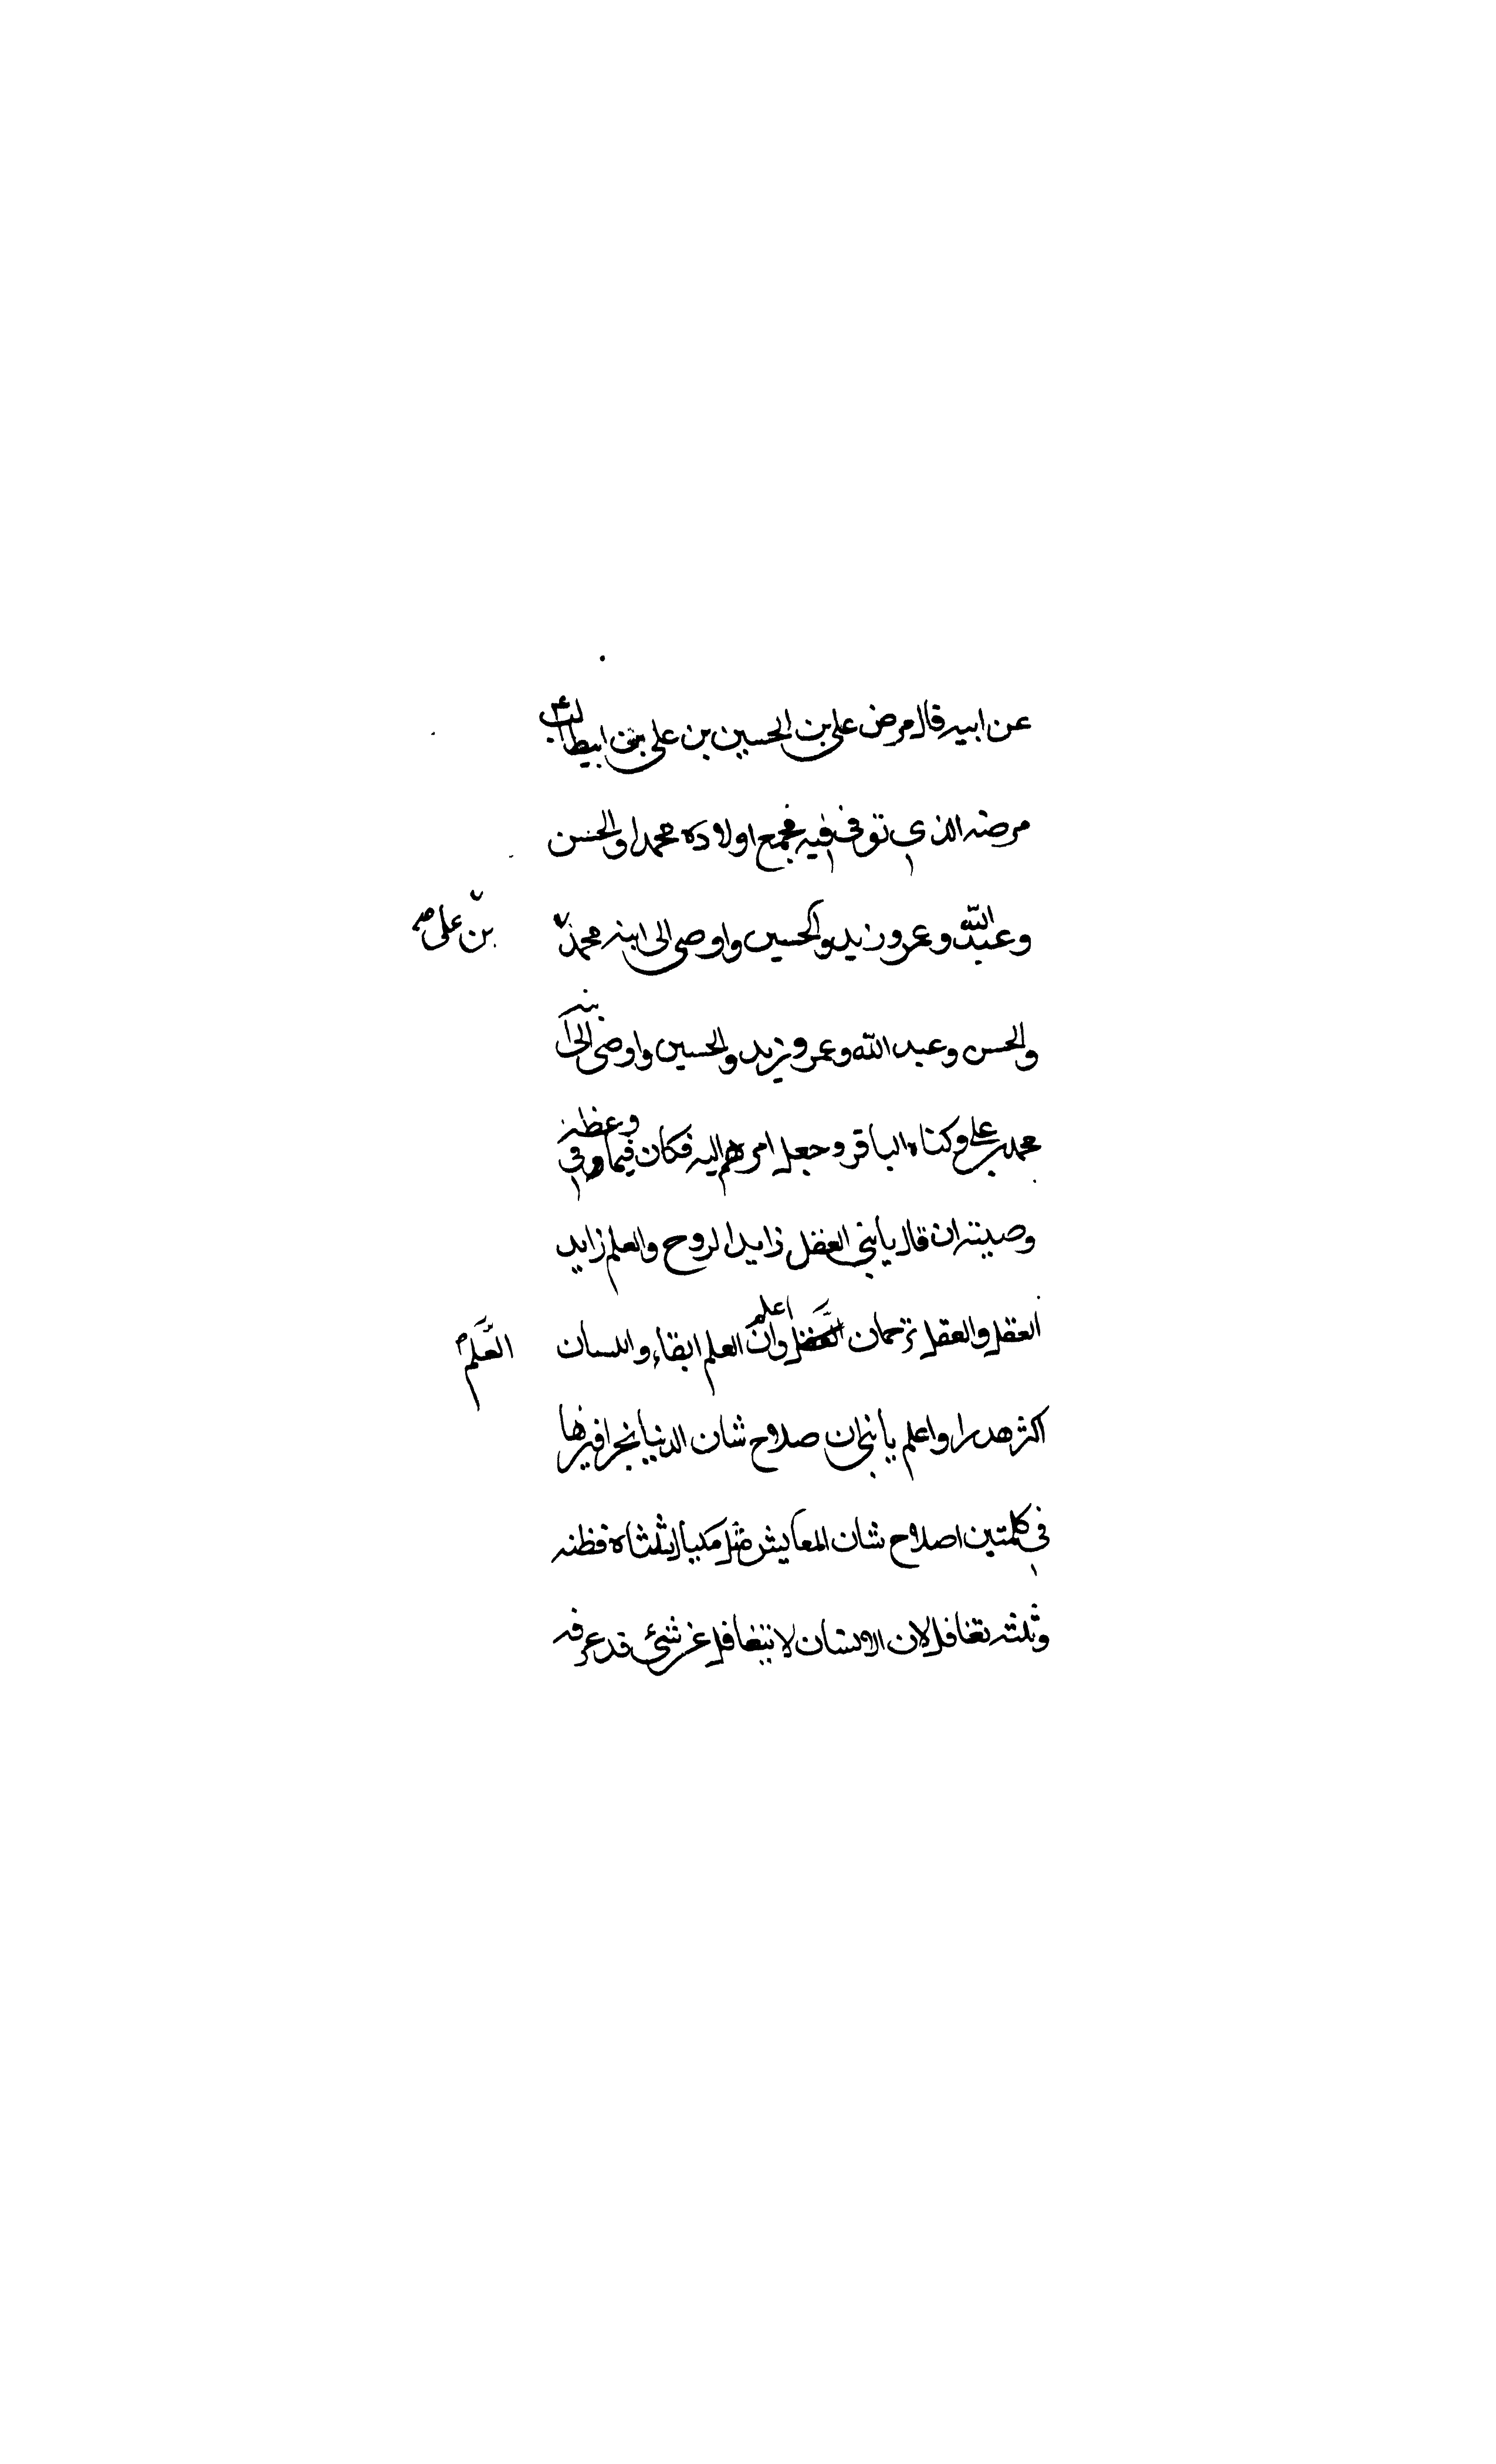 عن ابيه قال مرض علي بن الحسين بن علي بن ابيطالب ع
مرضه الذي توفي فيه فجمع اولاده محمدا والحسن
وعبد الله وعمر وزيد والحسين واوصى الى ابنه محمد بن علي
والحسن وعبد الله وعمر وزيد والحسين واوصى الى ابنه
محمد بن علي وكناه الباقر وجعل امرهم اليه فكان فيما وعظه في
وصيته ان قال يا بني العقل زايد الروح والعلم زايد
العقل والعقل ترجمان العلم واعلم ان العلم ابقاء واللسان
اكثر هدرا واعلم يا بني ان صلاح شان الدنيا بحذافيرها
في كلمتين اصلاح شان المعايش مثل مكيال ثلثاه فطنه
وثلثه تغافل لان الانسان لا يتغافل عن شئ قد عرفه